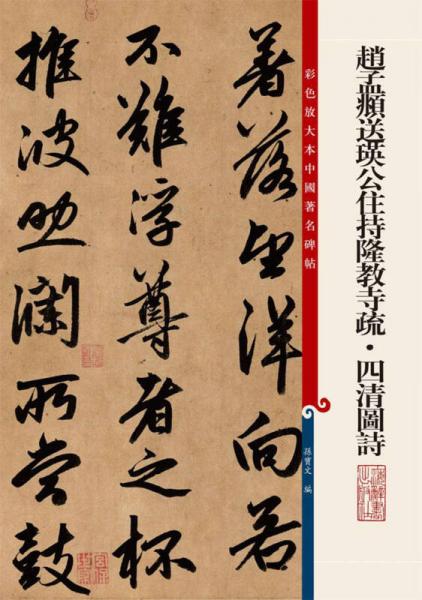 趙孟頫送瑛公住持隆教寺疏・四清圖詩
彩色放大本中國著名碑帖
孫寶文 編
著落望洋向若
不難浮尊者之杯
推波助瀾所當鼓